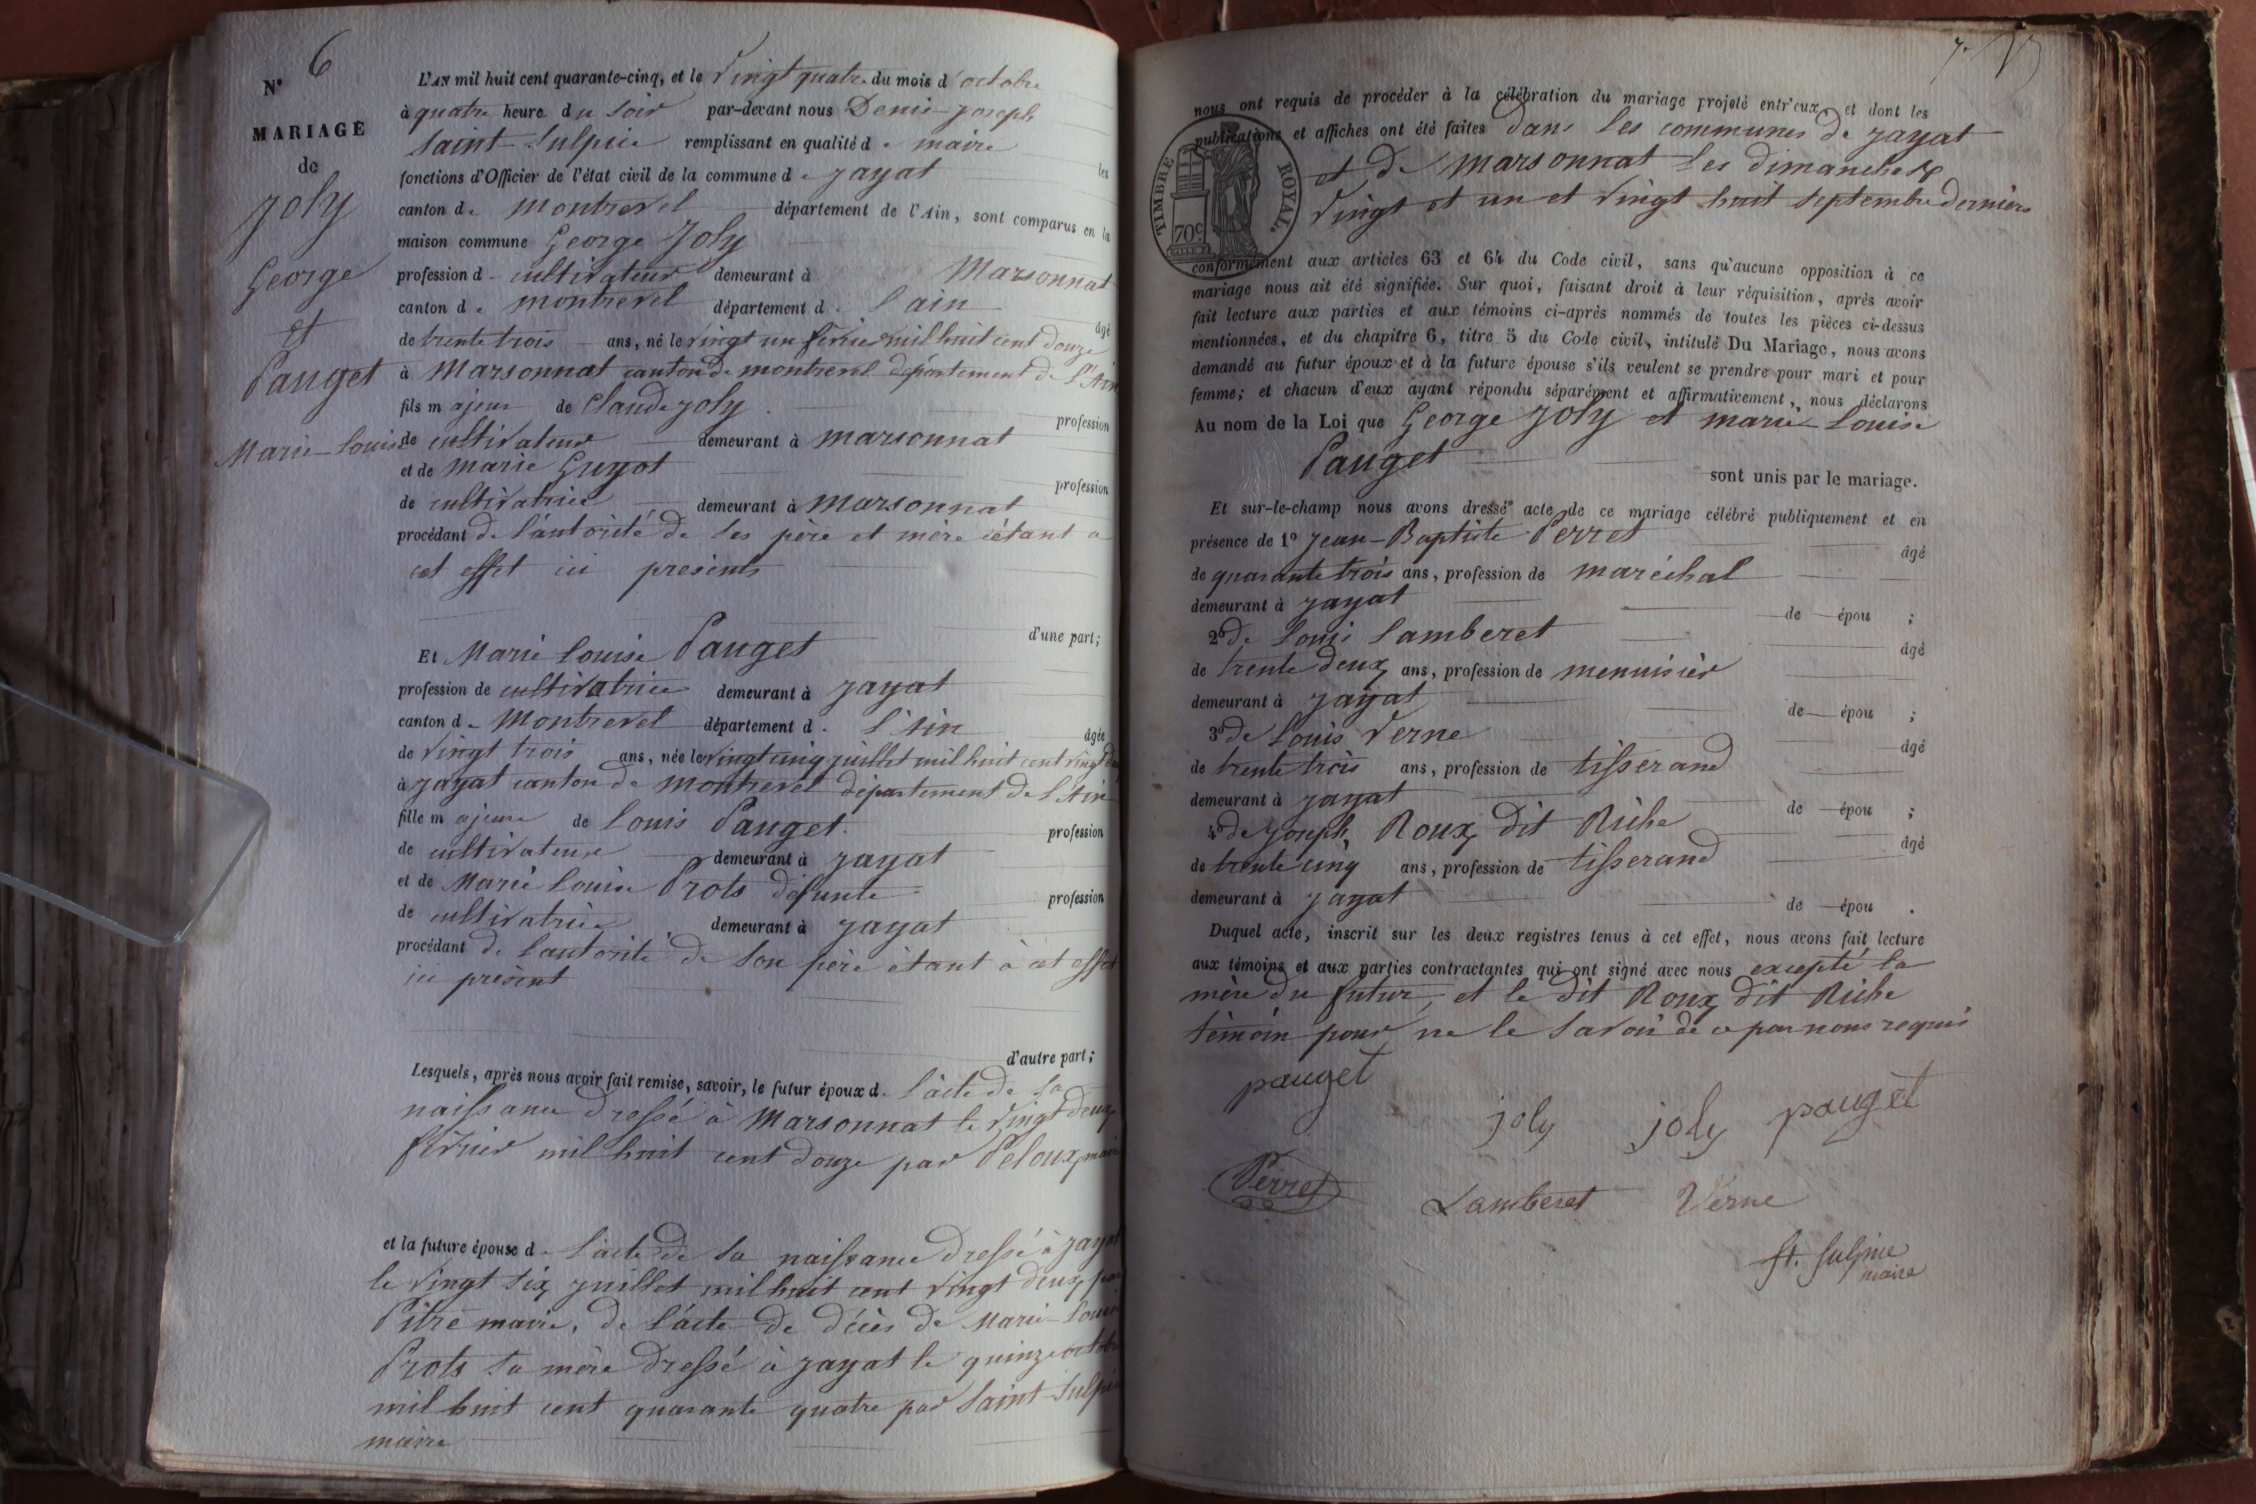 N° 6
MARIAGE
de
Joly
George
et
Pauget
Marie-Louise
L'AN mil huit cent quarante-cinq, et le vingt quatre du mois d'octobre
à quatre heure du soir par-devant nous Denis-Joseph
Saint-Sulpice remplissant en qualité de maire les
fonctions d'Officier de l'état civil de la commune de Jayat
canton de Montrevel département de l'Ain, sont comparus en la
maison commune George Joly
profession d cultivateur demeurant à Marsonnat
canton de Montrevel département d l'ain âgé
de trente trois ans, né le vingt un février mil huit cent douze
à Marsonnat canton de montrevel département de l'Ain
fils majeur de Claude Joly profession
de cultivateur demeurant à marsonnat
et de marie Guyot profession
de cultivatrice demeurant à Marsonnat
procédant de l'autorité de ses père et mère étant a
cet effet ici présents
d'une part;
Et Marie Louise Pauget
profession de cultivatrice demeurant à Jayat
canton d Montrevel département d l'Ain âgée
de vingt trois ans, née le vingt cinq juillet mil huit cent vingt
à Jayat canton de montrevel département de l'Ain
fille majeure de Louis Pauget profession
de cultivateur demeurant à Jayat
et de Marie Louise Prots défunte profession
de cultivatrice demeurant à Jayat
procédant de l'autorité de son père étant à cet effet
ici présent
d'autre part;
Lesquels, après nous avoir fait remise, savoir, le futur époux d l'acte de sa
naissance dressé à Marsonnat le vingt deux
février mil huit cent douze par Peloux, maire
et la future épouse d l'acte de sa naissance dressé à Jayat
le vingt six juillet mil huit cent vingt deux par
Pitre maire, de l'acte de décès de Marie-Louise
Prots sa mère dressé à Jayat le quinze octobre
mil huit cent quarante quatre par Saint-Sulpice
maire
7.
nous ont requis de procéder à la célébration du mariage projeté entr'eux, et dont les
publications et affiches ont été faites dans les communes de Jayat
et de Marsonnat les dimanches
vingt et un et vingt huit septembre derniers
TIMBRE ROYAL
70c
conformément aux articles 63 et 64 du Code civil, sans qu'aucune opposition à ce
mariage nous ait été signifiée. Sur quoi, faisant droit à leur réquisition, après avoir
fait lecture aux parties et aux témoins ci-après nommés de toutes les pièces ci-dessus
mentionnées, et du chapitre 6, titre 5 du Code civil, intitulé Du Mariage, nous avons
demandé au futur époux et à la future épouse s'ils veulent se prendre pour mari et pour
femme; et chacun d'eux ayant répondu séparément et affirmativement, nous déclarons
Au nom de la Loi que George Joly et marie-Louise
Pauget
sont unis par le mariage.
Et sur-le-champ nous avons dressé acte de ce mariage célébré publiquement et en
présence de 1° Jean-Baptiste Perret âgé
de quarante trois ans, profession de maréchal
demeurant à Jayat de épou ;
2° de Louis Lamberet âgé
de trente deux ans, profession de menuisier
demeurant à Jayat de épou ;
3° de Louis Verne âgé
de trente trois ans, profession de tisserand
demeurant à Jayat de épou ;
4° de Joseph Roux dit Riche âgé
de trente cinq ans, profession de tisserand
demeurant à Jayat de épou .
Duquel acte, inscrit sur les deux registres tenus à cet effet, nous avons fait lecture
aux témoins et aux parties contractantes qui ont signé avec nous excepté la
mère du futur, et le dit Roux dit Riche
témoin pour ne le savoir de ce par nous requis
pauget
joly joly pauget
Perret
Lamberet Verne
St. Sulpice
maire